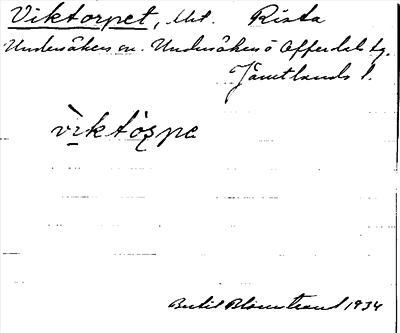 Viktorpet, Urt. Rista
Undersåkers sn. Undersåkers o Offerdals tg.
Jämtlands l.
vìktòṣpe
Bertil Blomstrand 1934